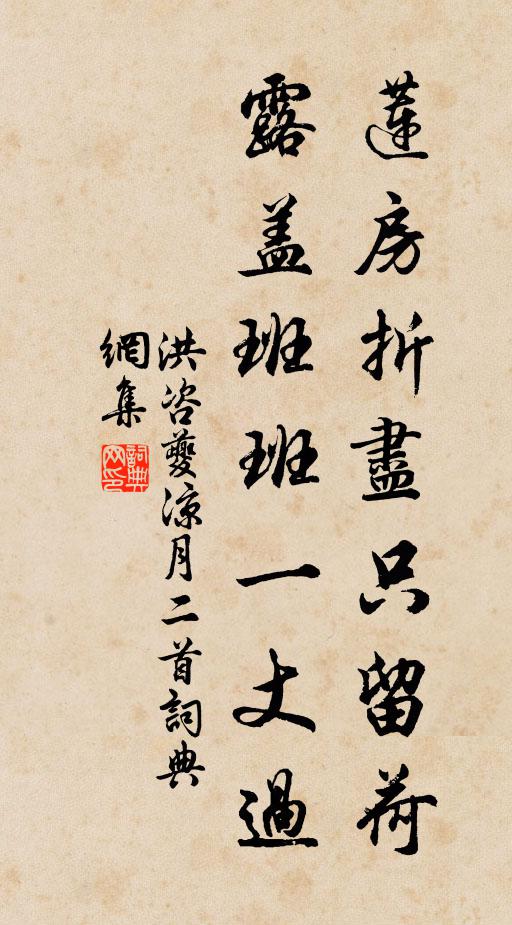 蓮房折盡只留荷
露盖班班一丈過
洪咨夔涼月二首詞典
網集
詞典
网印